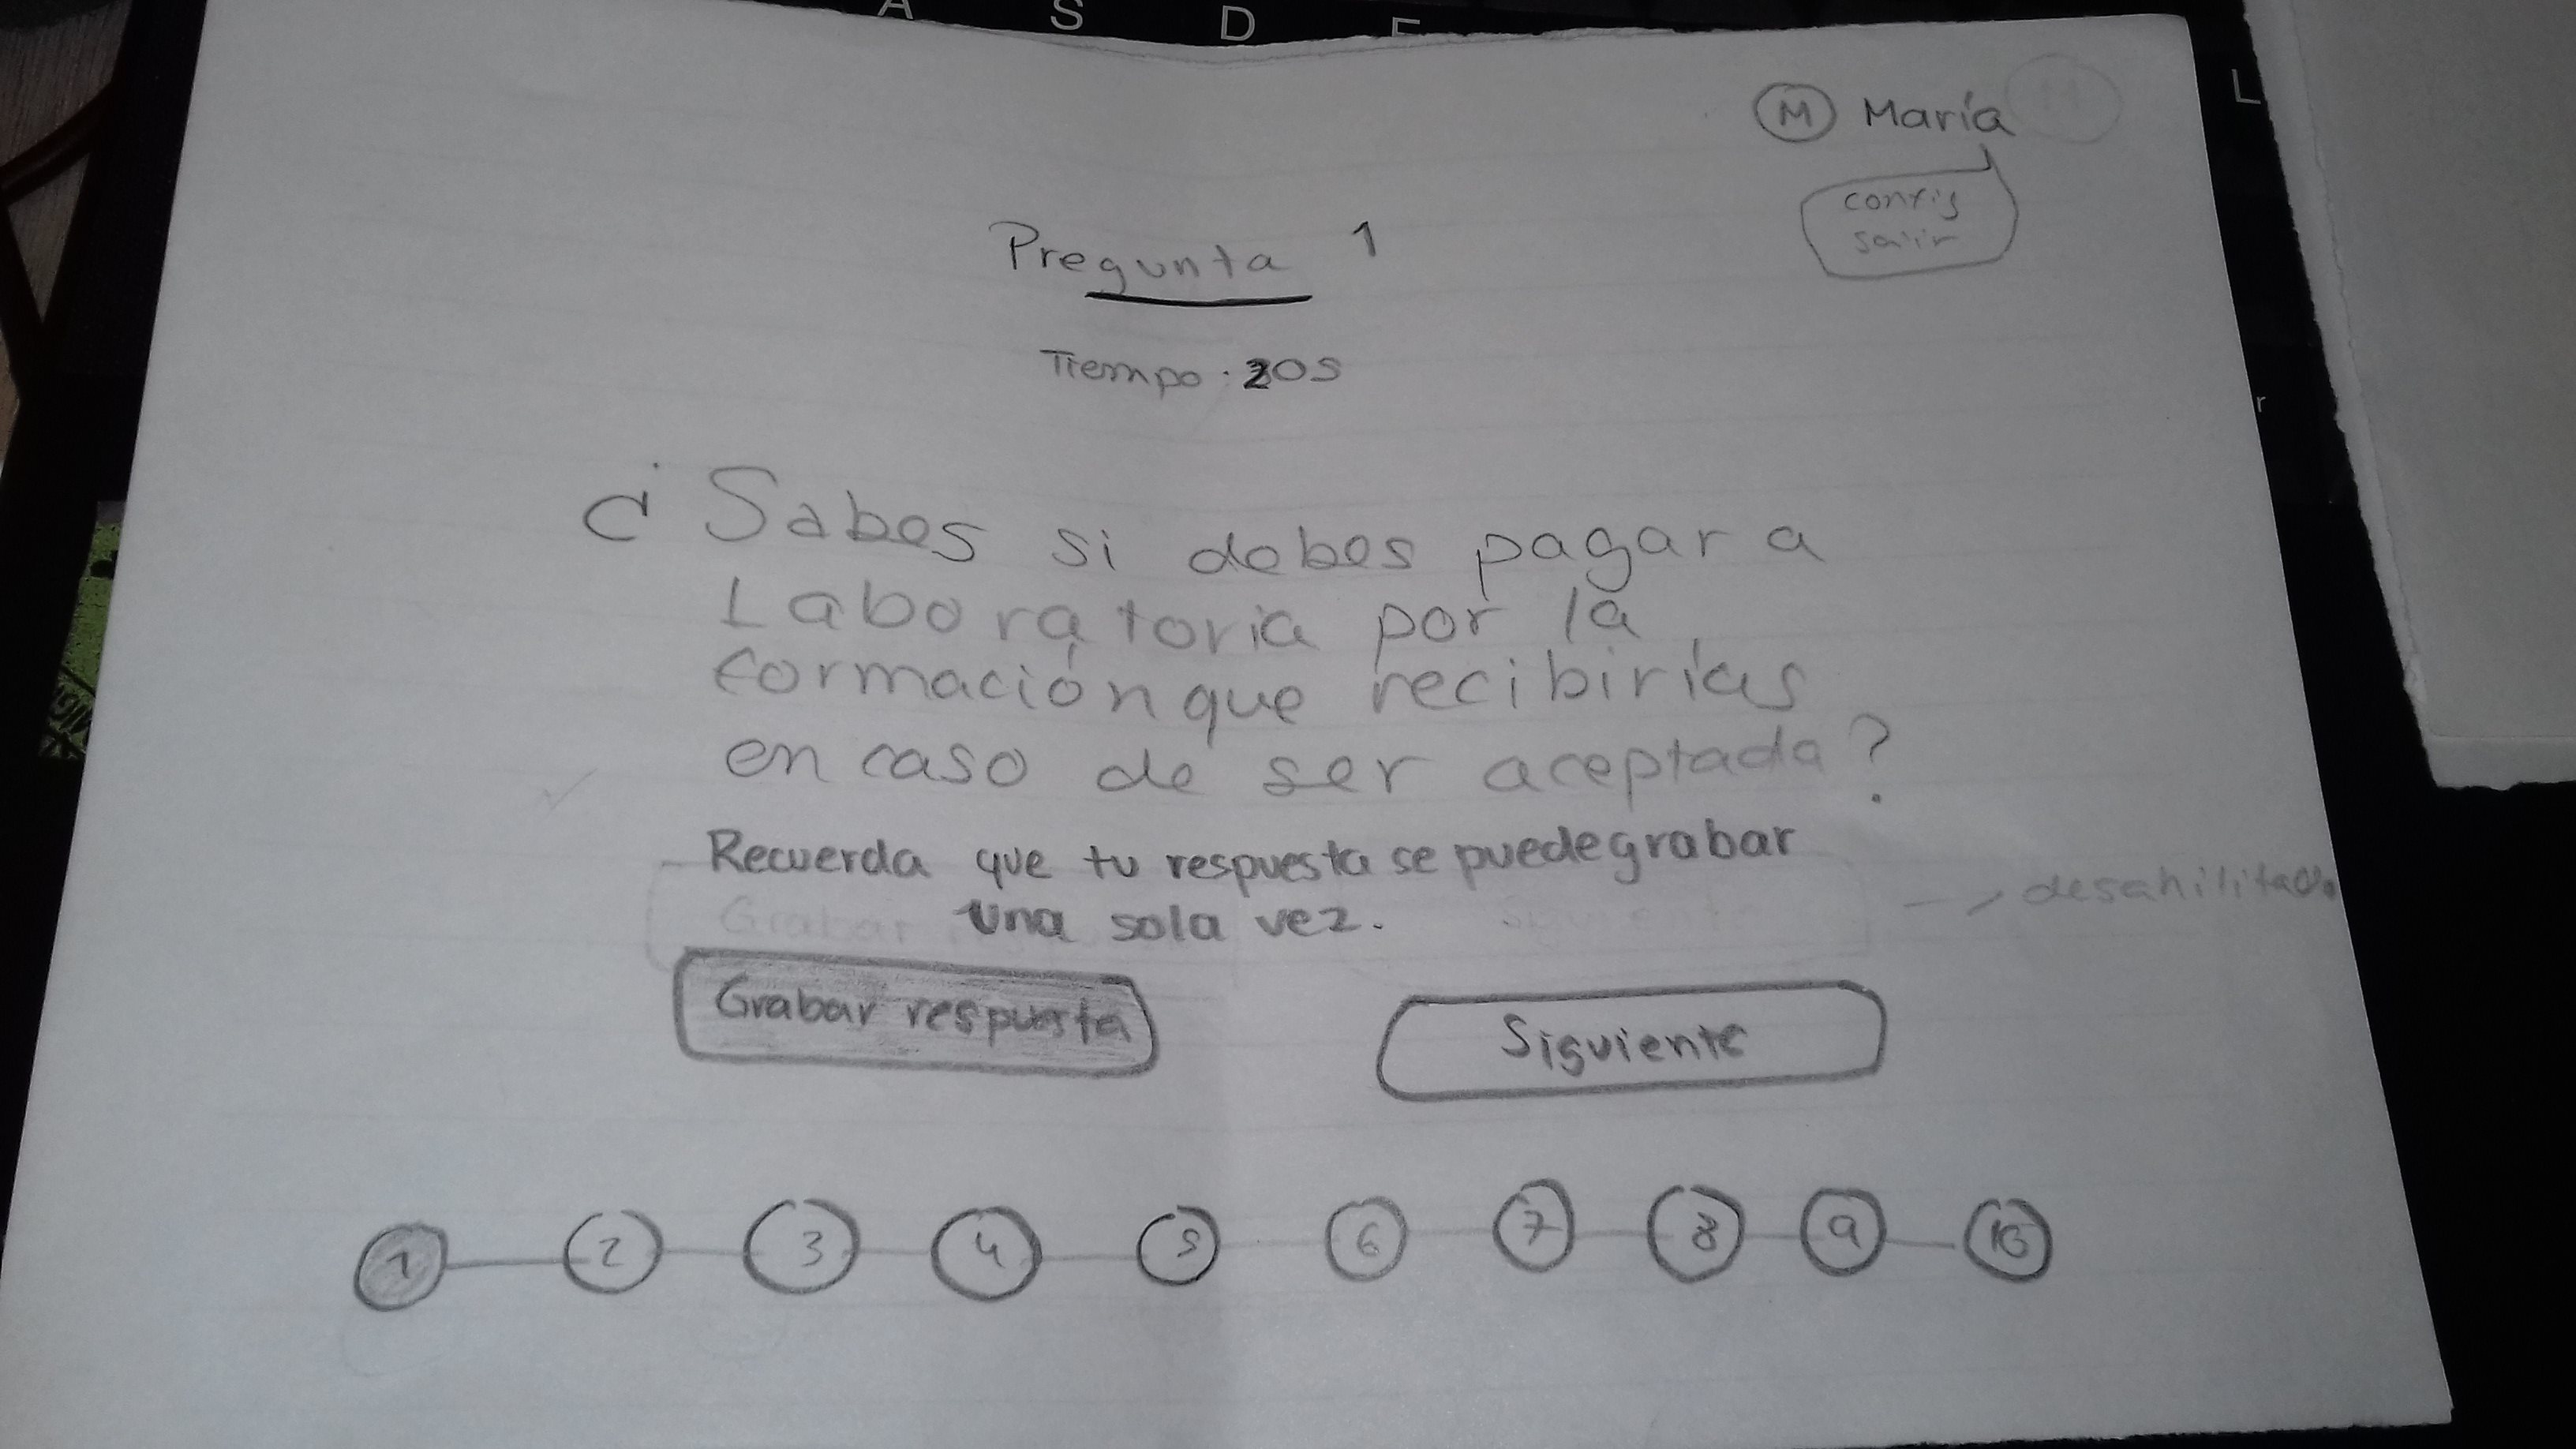 A S D F
L
M María
config
salir
Pregunta 1
Tiempo: 20s
r
¿Sabes si debes pagar a
Laboratoria por la
formación que recibirías
en caso de ser aceptada?
Recuerda que tu respuesta se puede grabar
una sola vez.
desahilitado
Grabar
Grabar respuesta
Siguiente
1 2 3 4 5 6 7 8 9 10